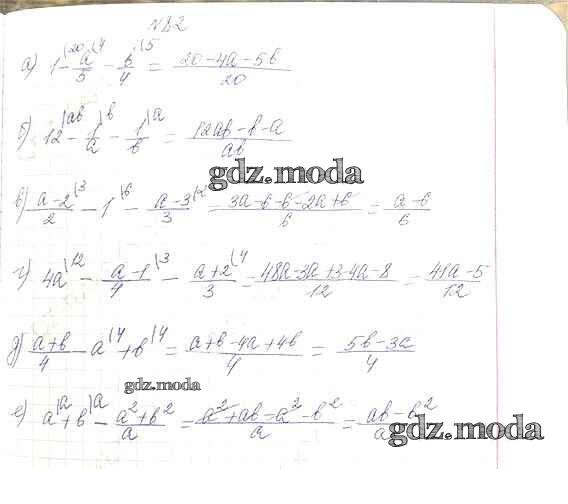 №82
а) 1|20 - a/5|4 - b/4|5 = (20-4a-5b)/20
б) 12|ab - 1/a|b - 1/b|a = (12ab-b-a)/ab
gdz.moda
в) (a-2)/2|3 - 1|6 - (a-3)/3|2 = (3a-6-6-2a+6)/6 = (a-6)/6
г) 4a|12 - (a-1)/4|3 - (a+2)/3|4 = (48a-3a+3-4a-8)/12 = (41a-5)/12
д) (a+b)/4 - a|4 + b|4 = (a+b-4a+4b)/4 = (5b-3a)/4
gdz.moda
е) a|a + b|a - (a²+b²)/a = (a²+ab-a²-b²)/a = (ab-b²)/a
gdz.moda